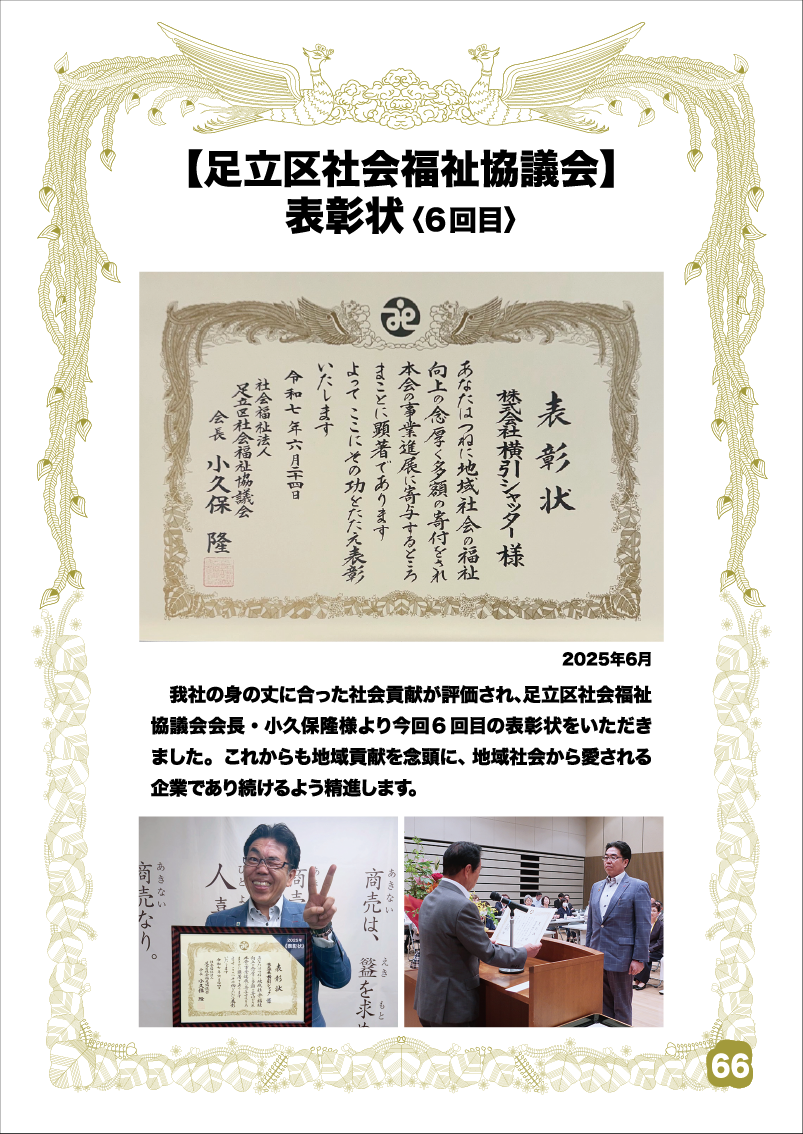 【足立区社会福祉協議会】
表彰状〈6回目〉
表彰状
株式会社横引シャッター 様
あなたはつねに地域社会の福祉
向上の念厚く多額の寄付をされ
本会の事業進展に寄与するところ
まことに顕著であります
よってここにその功をたたえ表彰
いたします
令和七年六月二十四日
社会福祉法人
足立区社会福祉協議会
会長 小久保 隆
2025年6月
我社の身の丈に合った社会貢献が評価され、足立区社会福祉
協議会会長・小久保隆様より今回6回目の表彰状をいただき
ました。これからも地域貢献を念頭に、地域社会から愛される
企業であり続けるよう精進します。
あきない
商売は、
えき もと
人
商売なり。
あきない
2025年
《表彰状》
表彰状
66